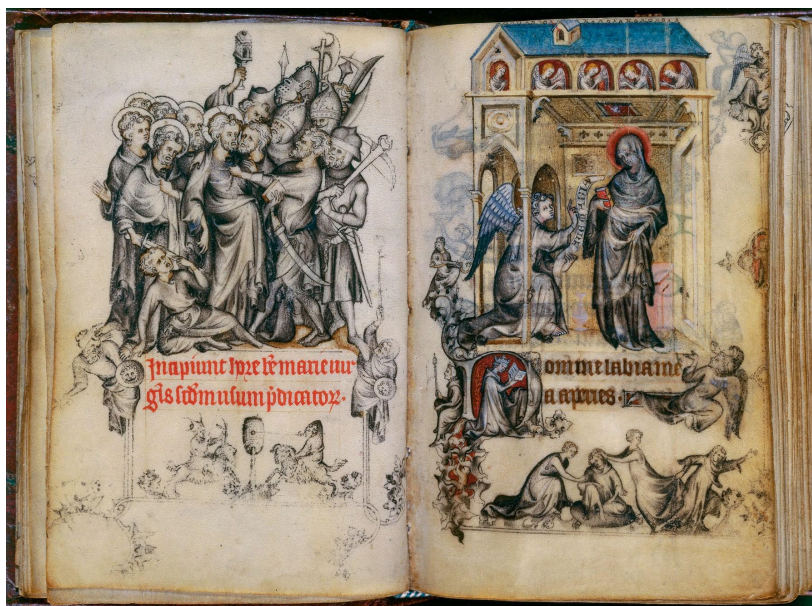 Incipiunt hore bẽ marie uir
gis scdm usum p̃dicatoꝝ.
omine labia me
a aperies.